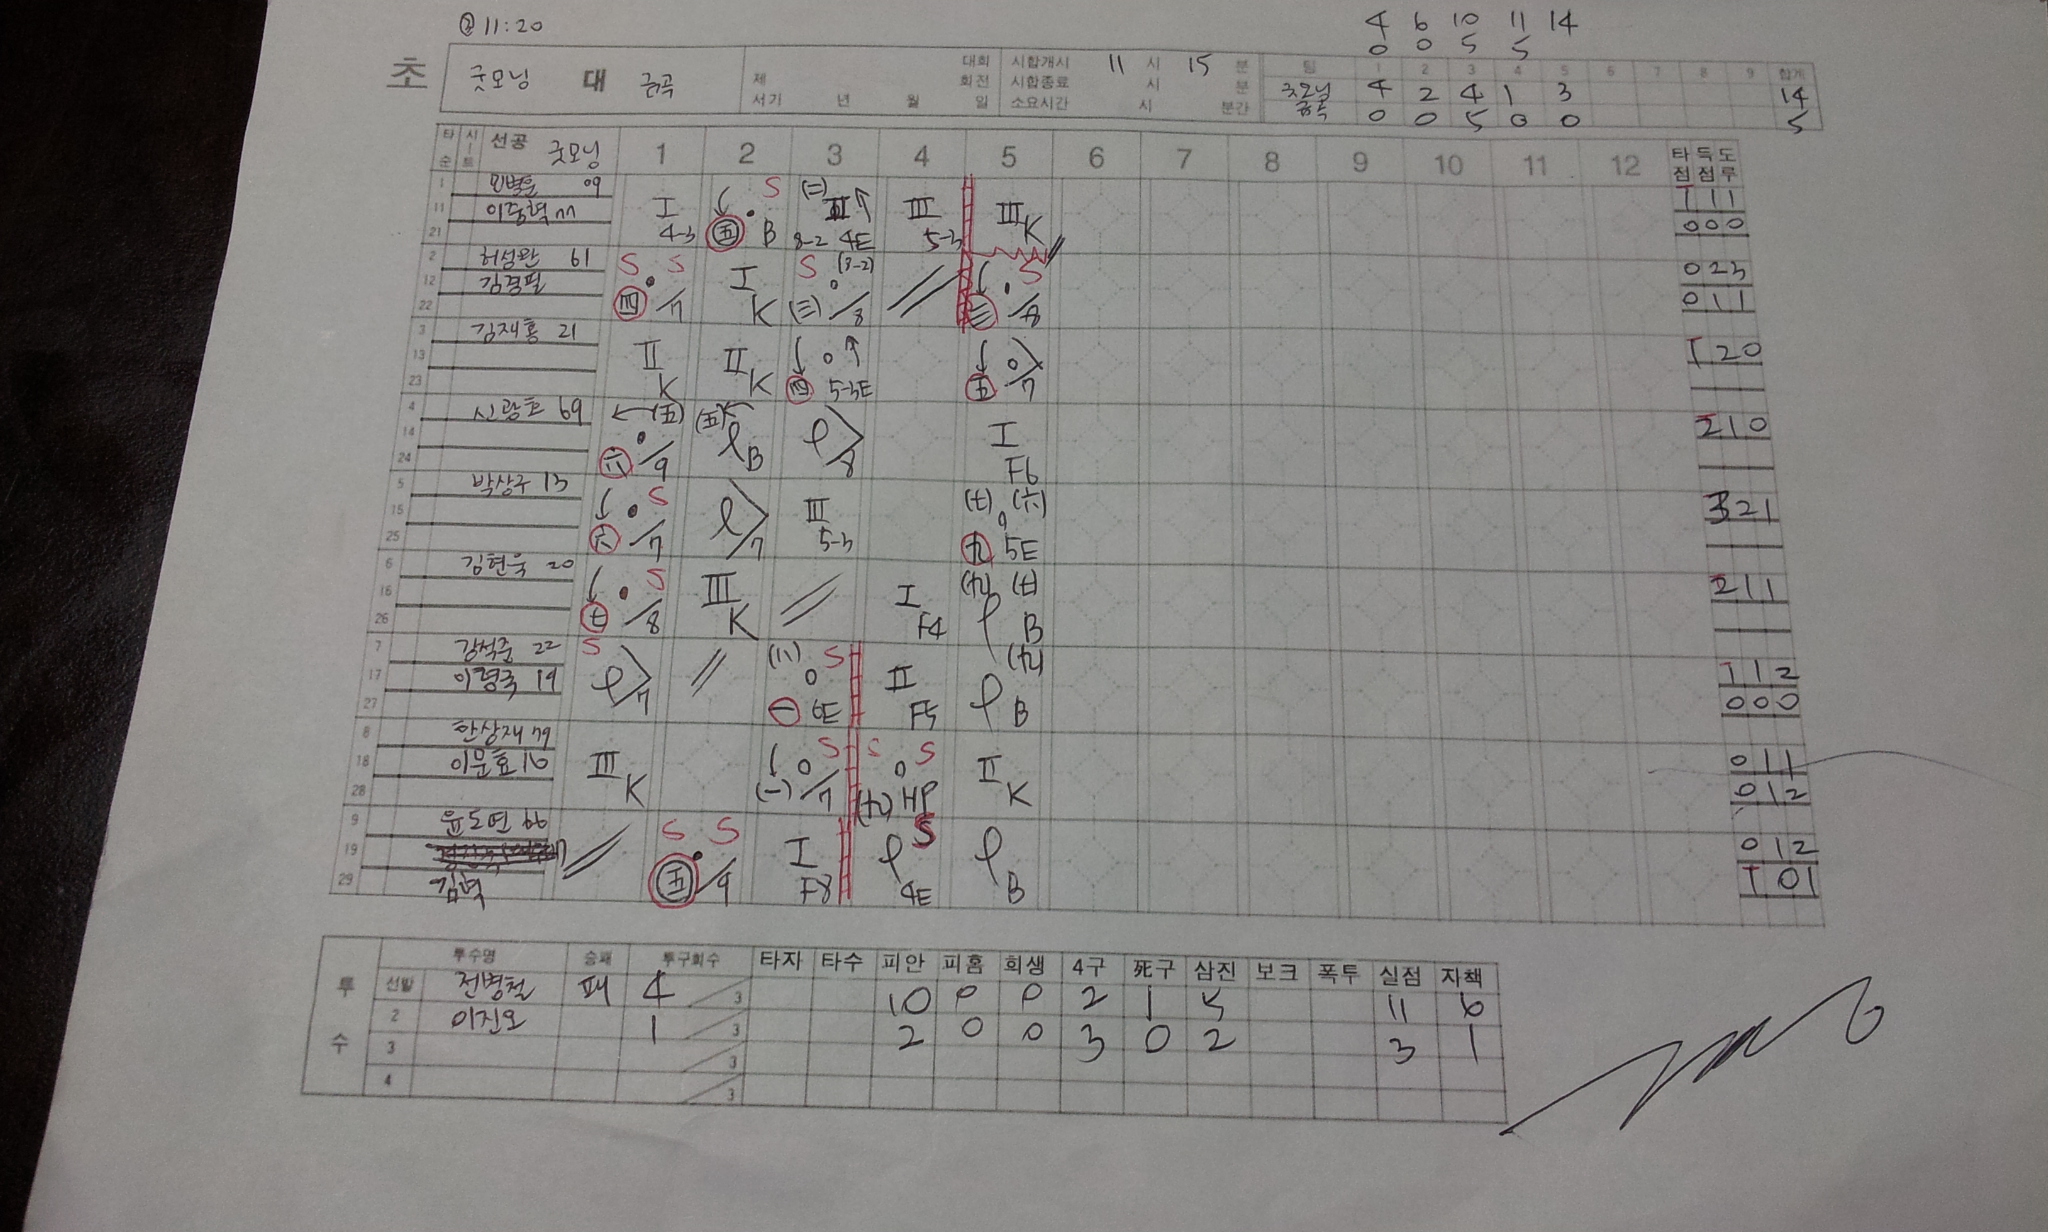 @ 11:20
4 6 10 11 14
0 0 5 5
초
굿모닝 대 금곡
제 대회
회전
서기 년 월 일
시합개시 11 시 15 분
시합종료 시 분
소요시간 시 분간
팀 1 2 3 4 5 6 7 8 9 합계
굿모닝 4 2 4 1 3 14
금곡 0 0 5 0 0 5
타순 시트 선공 굿모닝 1 2 3 4 5 6 7 8 9 10 11 12 타점 득점 도루
1 09 I 4-3 S 五 B (二) 8-2 4E III 5-3 III K 1 1 1
11 77 0 0 0
21
2 허성완 61 S S 四 /7 I K S (8-2) (三) /8 三 S /8 0 2 3
12 김경필 0 1 1
22
3 김재홍 21 II K II K 四 5-3E 五 /7 1 2 0
13
23
4 신광호 69 (五) 六 /9 (五) B /8 I F6 2 1 0
14
24
5 박상구 13 S 六 /7 /7 III 5-3 (七) (六) 九 5E 3 2 1
15
25
6 김현욱 20 S 七 /8 III K I F4 (九) (七) B 2 1 1
16
26
7 강석준 22 S /7 (八) S 一 6E II F5 (九) B 1 1 2
17 이형국 19 0 0 0
27
8 한상재 79 III K S (一) /7 S S (九) HP II K 0 1 1
18 이문효 16 0 1 2
28
9 윤도연 66 S S 五 /9 I F8 S 4E B 0 1 2
19
29 김혁 1 0 1
투수
투수명 승패 투구회수 타자 타수 피안 피홈 희생 4구 死구 삼진 보크 폭투 실점 자책
선발 전병철 패 4 3 10 0 0 2 1 5 11 6
2 이진오 1 3 2 0 0 3 0 2 3 1
3 3
4 3